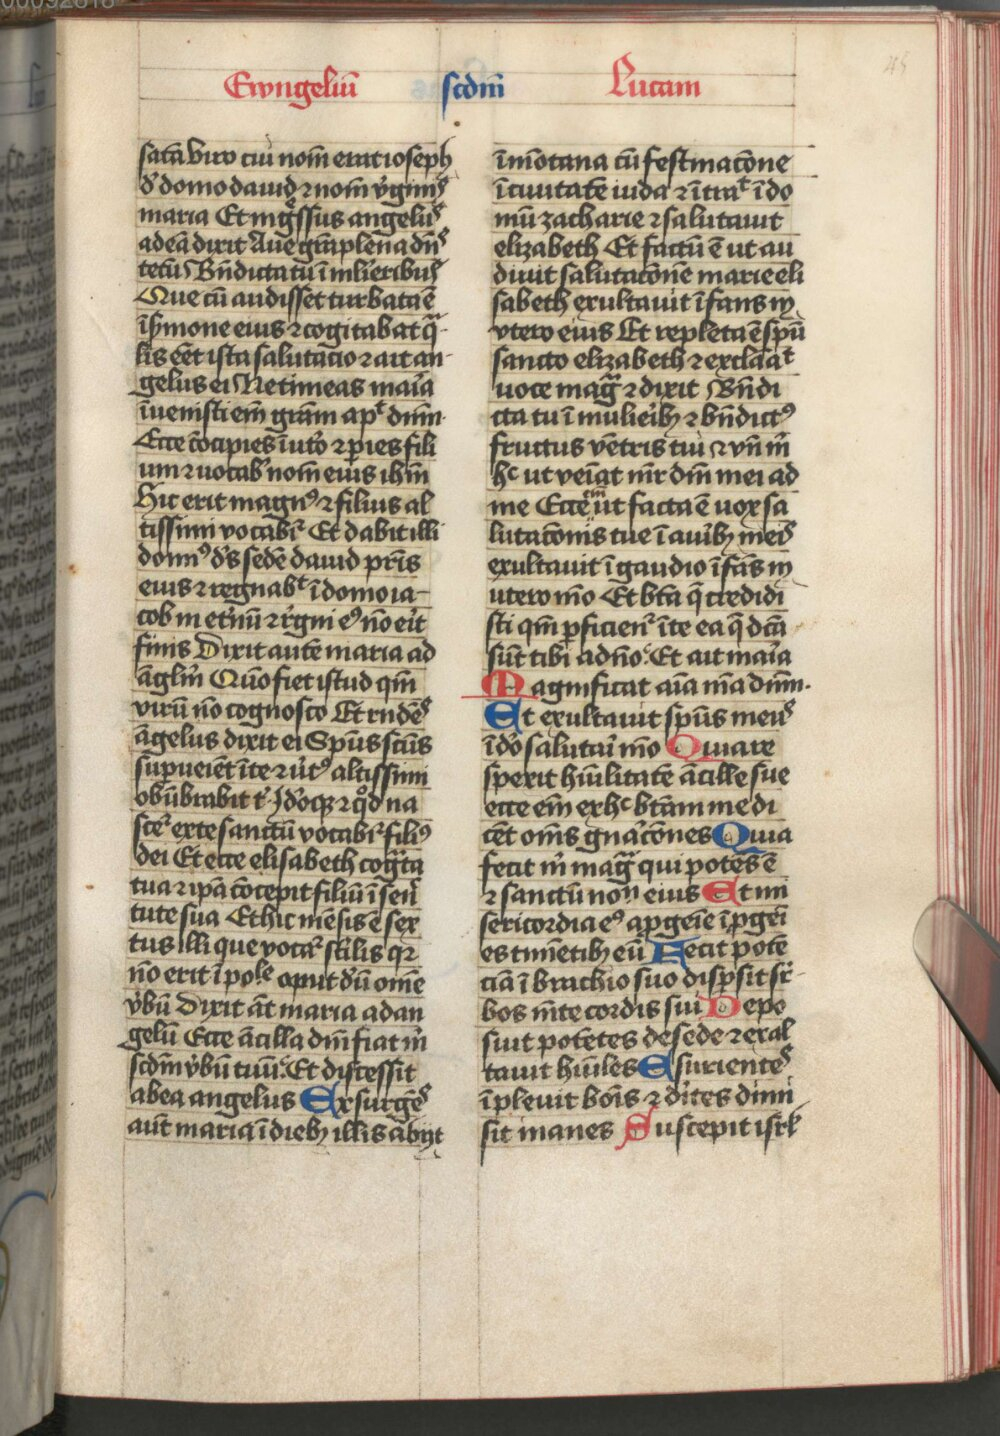 00092818
45
Ewngeliū scdm̄ Lucam
satā viro cui nom̄ erat ioseph
d̕ domo dauid ⁊ nom̄ v̕ginis
maria Et ingssus angelus
ad eā dixit Aue gr̄a plena dn̄s
tecū Bn̄dicta tu ī mlīeribus
Que cū audisset turbata ē
ī s̕mone eius ⁊ cogitabat q̄
lis eēt ista salutatio ⁊ ait an-
gelus ei Ne timeas maīa
īuenisti em̄ grām apt dnm̄
Ecce c̄ocipies ī uto̕ ⁊ p̄ies fili
um ⁊ vocab̕ nom̄ eius ihm̄
Hic erit magn⁹ ⁊ filius al
tissimi vocabr̕ Et dabit illi
domn⁹ d̕s sedē dauid pr̄is
eius ⁊ regnabt ī domo ia-
cob in et̕nū ⁊ r̕gni e⁹ nō eīt
finis Dixit autē maria ad
āglm̄ Quō fiet istud qm̄
virū nō cognosco Et rn̄dēs
āgelus dixit ei Spūs scūs
supueiēt ī te ⁊ v̕t⁹ altissimi
obūbrabit t̕ Jd̕oqꝫ ⁊ qd̕ na
scet̕ ex te sanctū vocabr̕ fili⁹
dei Et ecce elisabeth cog̕ta
tua ⁊ ip̄a c̄ocepit filiū ī sen̕
tute sua Et hic mēsis ē sex
tus illi que vocar̕ st̕ilis qr
nō erit īpole aput d̕ū ome
v̕bū Dixit āt maria ad an
gelū Ecce ācilla dm̄ fiat m̕
scdm̄ v̕bū tuū Et discessit
ab ea angelus Exsurgēs
aūt maria ī diebꝫ illis abijt
ī mōtana cū festinacōne
ī ciuitatē iuda ⁊ ītrat ī do
mū zacharie ⁊ salutauit
elizabeth Et factū ē ut au
diuit salutacōnē marie eli
sabeth exultauit īfans in
vtero eius Et repleta ē spū
sancto elizabeth ⁊ exclāat
uoce mag̕ ⁊ dixit Bn̄di
cta tu ī mulieīb ꝫ ⁊ bn̄dict⁹
fructus vētris tui ⁊ vn̄ m̕
hc ut veīat mr̄ dm̄ mei ad
me Ecce em̄ ut facta ē uox sa
lutacōnis tue ī auibꝫ meis
exultauit ī gaudio īfās in
utero mō Et bt̄a q̄ credidi
sti qm̄ pficien̕ ī te ea q̄ dc̄a
sūt tibi a dn̄o Et ait maīa
Magnificat aīa m̄a dnm̄
Et exultauit spūs meus
ī d̕o salutaī mō Quia re
spexit hūilitatē ācille sue
ecce em̄ ex hc bt̄am me di
cēt om̄s gn̄acōnes Quia
fecit m̕ mag̕ qui potēs ē
⁊ sanctū non eius Et mi
sericordia e⁹ a pgeīe ī pgeī
es timētibꝫ eū Fecit potē
ciā ī brachio suo dispsit sr̕
bos mēte cordis sui Depo
suit potētes de sede ⁊ exal
tauit hūiles Esurientes
īpleuit boīs ⁊ d̕ites dimi
sit inanes Suscepit isrl